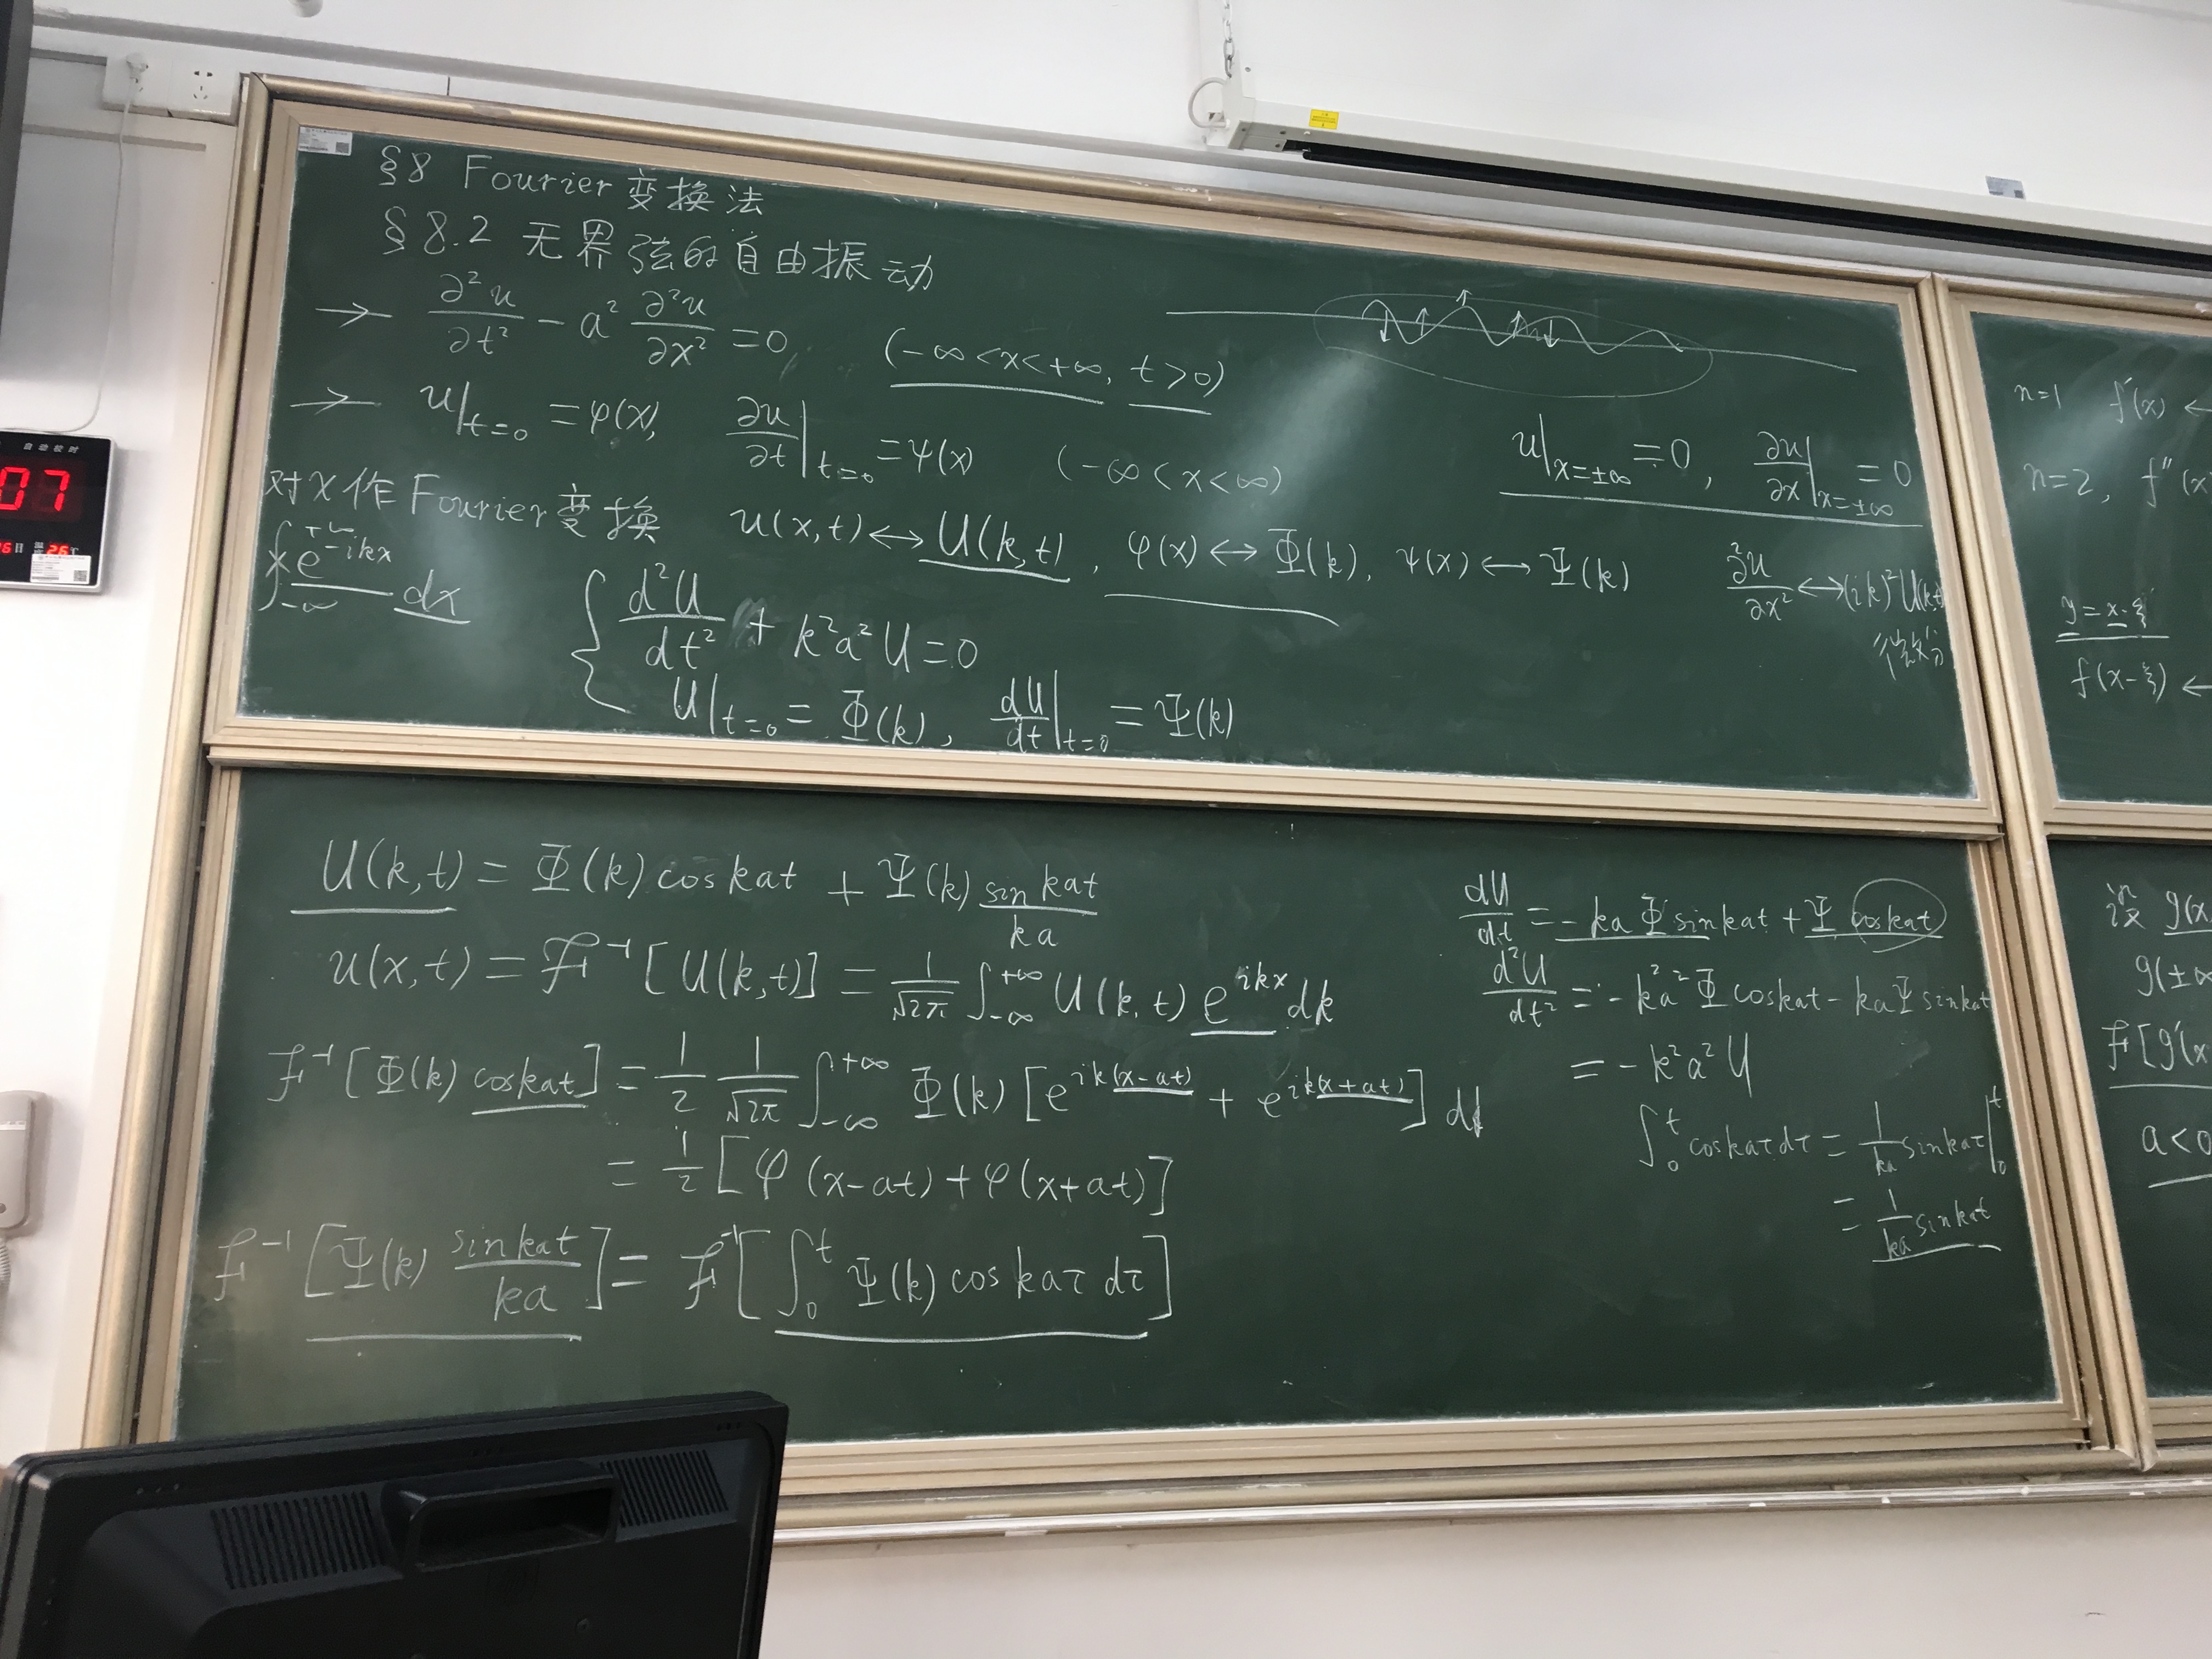 §8 Fourier变换法
§8.2 无界弦的自由振动
→ ∂²u/∂t² - a² ∂²u/∂x² = 0, (-∞<x<+∞, t>0)
→ u|t=0 = φ(x), ∂u/∂t|t=0 = ψ(x) (-∞<x<∞)
u|x=±∞ = 0, ∂u/∂x|x=±∞ = 0
对x作Fourier变换 u(x,t)↔U(k,t), φ(x)↔Φ(k), ψ(x)↔Ψ(k)
∫_{-∞}^{+∞} × e^{-ikx} dx
∂²u/∂x² ↔ (ik)² U(k,t)
d²U/dt² + k²a²U = 0
U|t=0 = Φ(k), dU/dt|t=0 = Ψ(k)
U(k,t) = Φ(k) cos kat + Ψ(k) sin kat/ka
u(x,t) = F⁻¹[U(k,t)] = 1/√2π ∫_{-∞}^{+∞} U(k,t) e^{ikx} dk
F⁻¹[Φ(k) cos kat] = 1/2 1/√2π ∫_{-∞}^{+∞} Φ(k) [e^{ik(x-at)} + e^{ik(x+at)}] dk
= 1/2 [φ(x-at) + φ(x+at)]
F⁻¹[Ψ(k) sin kat/ka] = F⁻¹[∫_0^t Ψ(k) cos kaτ dτ]
dU/dt = -ka Φ sin kat + Ψ cos kat
d²U/dt² = -k²a² Φ cos kat - ka Ψ sin kat
= -k²a² U
∫_0^t cos kaτ dτ = 1/ka sin kaτ|_0^t
= 1/ka sin kat
n=1 f'(x) ↔
n=2, f''(x
y = x-ξ
f(x-ξ) ↔
设 g(x
g(±∞
F[g'(x
a<0
自动校时
07
26